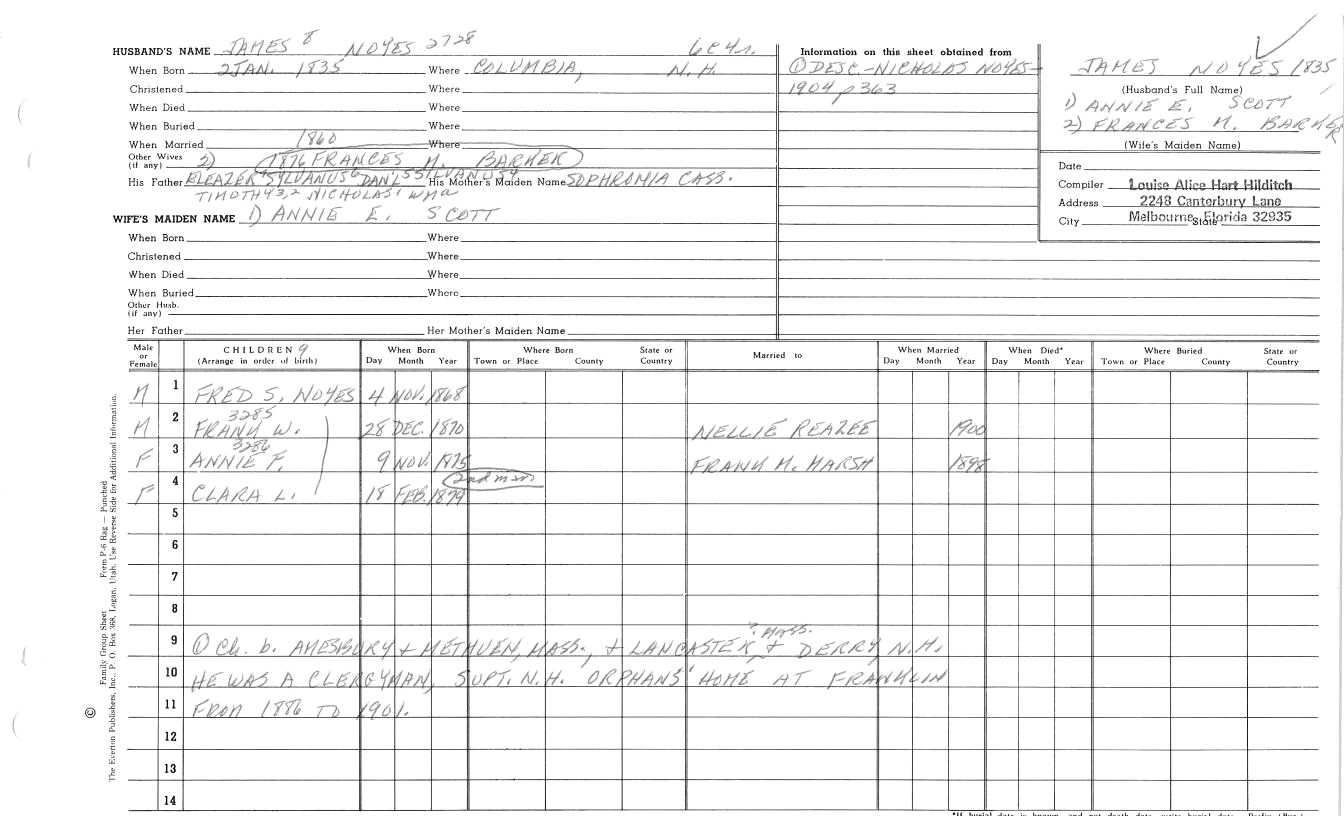 HUSBAND'S NAME JAMES 8 NOYES 2728
When Born 2 JAN. 1835 Where COLUMBIA, N.H.
Christened Where
When Died Where
When Buried Where
When Married 1860 Where
Other Wives (if any) 2) 1876 FRANCES M. BARKER
His Father ELEAZER SYLVANUS6 DAN'L5 SILVANUS4 His Mother's Maiden Name SOPHRONIA CASS.
TIMOTHY3,2 NICHOLAS1 Wm a
WIFE'S MAIDEN NAME 1) ANNIE E. SCOTT
When Born Where
Christened Where
When Died Where
When Buried Where
Other Husb. (if any)
Her Father Her Mother's Maiden Name
Information on this sheet obtained from
① DESC.-NICHOLAS NOYES-
1904 p363
JAMES NOYES 1835
(Husband's Full Name)
1) ANNIE E. SCOTT
2) FRANCES M. BARKER
(Wife's Maiden Name)
Date
Compiler Louise Alice Hart Hilditch
Address 2248 Canterbury Lane
City Melbourne, Florida 32935 State
Male or Female CHILDREN 9 (Arrange in order of birth) When Born Day Month Year Where Born Town or Place County State or Country Married to When Married Day Month Year When Died* Day Month Year Where Buried Town or Place County State or Country
M 1 FRED S. NOYES 4 NOV. 1868
3285
M 2 FRANK W. 28 DEC. 1870 NELLIE REAZEE 1900
3286
F 3 ANNIE F. 9 NOV. 1875 FRANK M. MARSH 1898
2nd mar
F 4 CLARA L. 18 FEB. 1879
5
6
7
8
? MASS.
9 ① Ch. b. AMESBURY + METHUEN, MASS., + LANCASTER, + DERRY, N.H.
10 HE WAS A CLERGYMAN, SUPT. N.H. ORPHANS' HOME AT FRANKLIN
11 FROM 1886 TO 1901.
12
13
14
© The Everton Publishers, Inc., P. O. Box 368, Logan, Utah. Use Reverse Side for Additional Information.
Family Group Sheet Form P-6 Rag — Punched